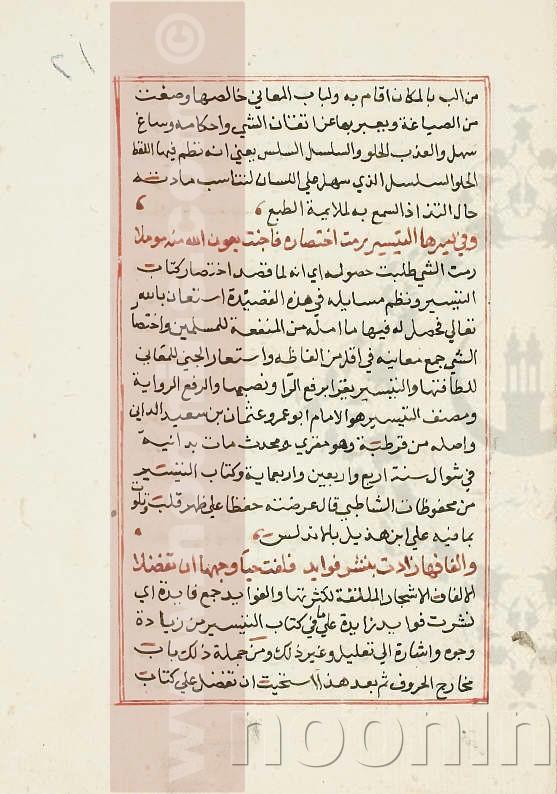 من الب بالمكان اقام به ولباب المعاني خالصها وصغت
من الصياغة ويعبر بها عن اتقان الشي واحكامه وساغ
سهل والعذب الحلو والسلسل السلس يعني انه نظم فيها اللفظ
الحلو السلسل الذي سهل علي اللسان لتناسب مادته
حال التذاذ السمع به لملايمة الطبع
وفي يسرها التيسير رمت اختصاره فاجنت بعون الله منه موملا
رمت الشي طلبت حصوله اي انه لما قصد اختصار كتاب
التيسير ونظم مسايله في هذه القصيدة استعان بالله
تعالي فحصل له فيها ما امله من المنفعة للمسلمين واختصار
الشي جمع معانيه في اقل من الفاظه واستعار الجني للمعاني
للطافتها والتيسير يقرا برفع الرا ونصبها والرفع الرواية
ومصنف التيسير هو الامام ابو عمرو عثمان بن سعيد الداني
واصله من قرطبة وهو مقري ومحدث مات بدانية
في شوال سنة اربع واربعين واربعماية وكتاب التيسير
من محفوظات الشاطبي قال عرضته حفظا علي ظهر قلب وتلوت
بما فيه علي ابن هذيل بالاندلس
والفافها زادت بنشر فوايد فلفت حيا وجهها ان تفضلا
الالفاف الاشجار الملتفة لكثرتها والفوايد جمع فايدة اي
نشرت فوايد زايدة علي ما في كتاب التيسير من زيادة
وجوه واشارة الي تعليل وغير ذلك ومن جملة ذلك باب
مخارج الحروف ثم بعد هذا استحيت ان تفضل علي كتاب
noonin